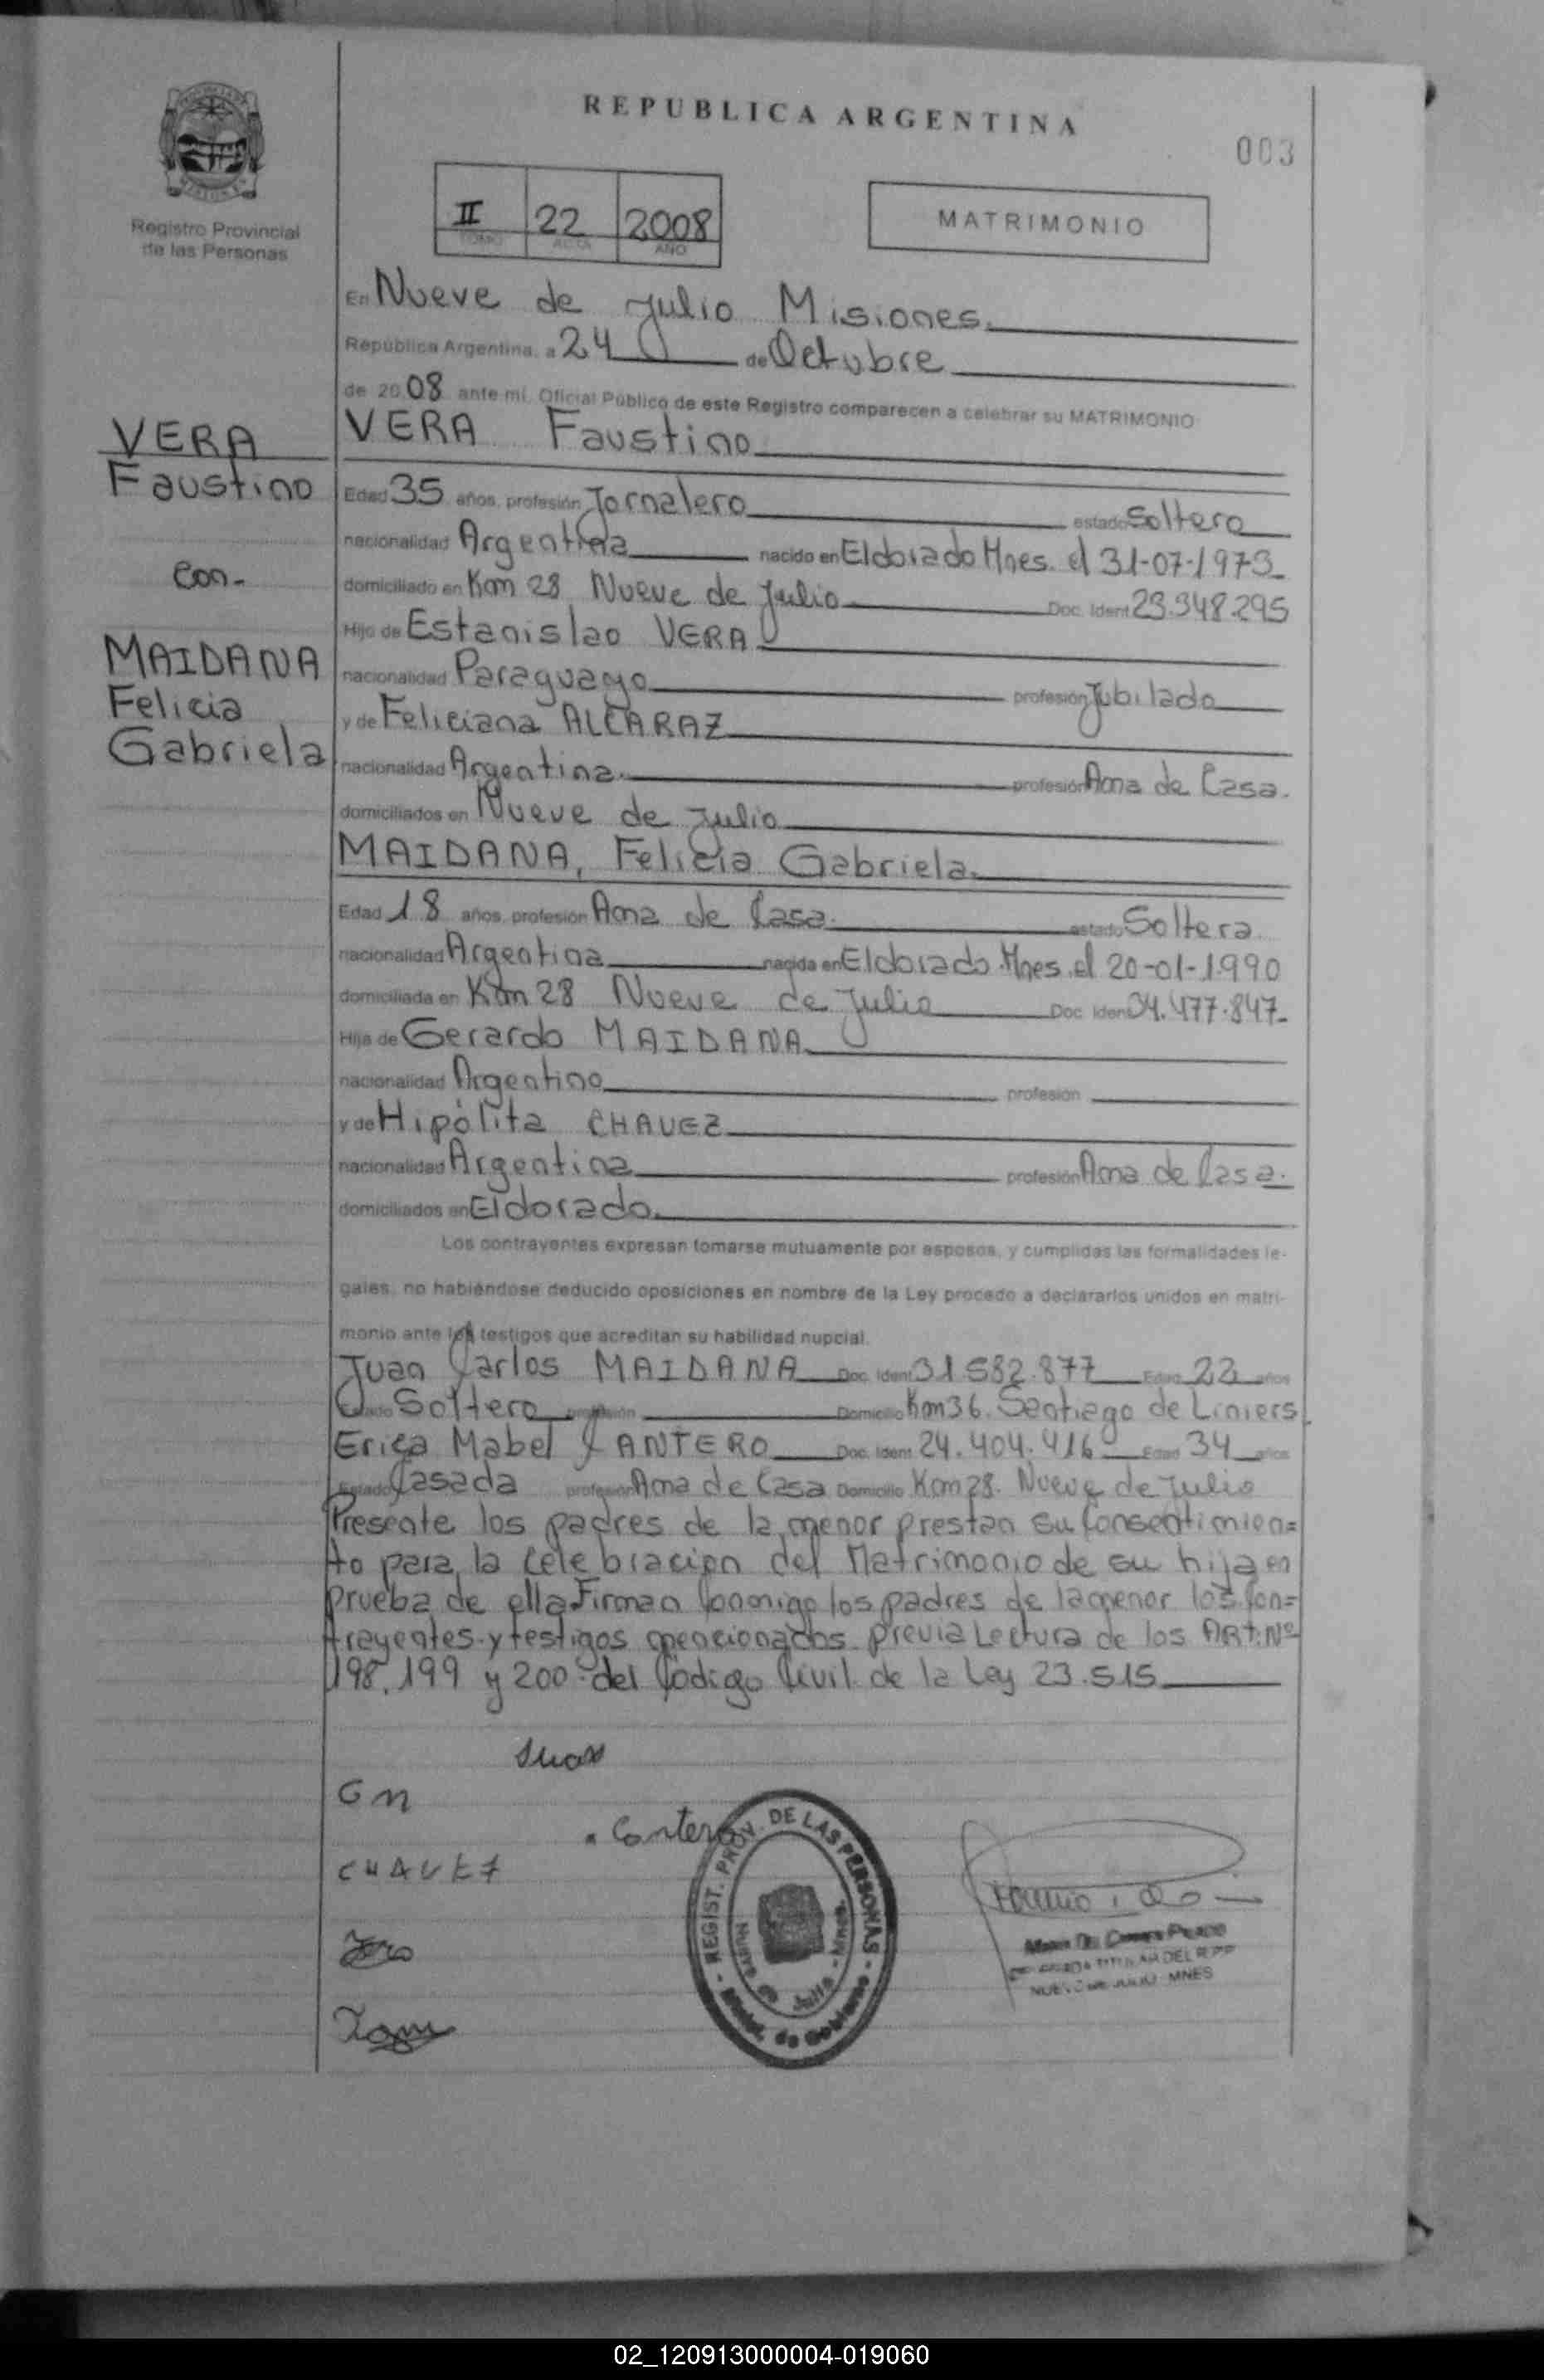 REPUBLICA ARGENTINA
003
Registro Provincial
de las Personas
II 22 2008
TOMO ACTA AÑO
MATRIMONIO
En Nueve de Julio Misiones.
República Argentina, a 24 de Octubre
de 2008 ante mí, Oficial Público de este Registro comparecen a celebrar su MATRIMONIO
VERA Faustino
VERA
Faustino
con-
MAIDANA
Felicia
Gabriela
Edad 35 años, profesión Jornalero estado Soltero
nacionalidad Argentina nacido en Eldorado Mnes. el 31-07-1973
domiciliado en Km 28 Nueve de Julio Doc. Ident 23.348.295
Hijo de Estanislao VERA
nacionalidad Paraguayo profesión Jubilado
y de Feliciana ALCARAZ
nacionalidad Argentina. profesión Ama de Casa.
domiciliados en Nueve de Julio
MAIDANA, Felicia Gabriela.
Edad 18 años, profesión Ama de Casa. estado Soltera.
nacionalidad Argentina nacida en Eldorado Mnes. el 20-01-1990
domiciliada en Km 28 Nueve de Julio Doc. Iden 34.477.847-
Hija de Gerardo MAIDANA
nacionalidad Argentino profesión
y de Hipólita CHAVEZ
nacionalidad Argentina profesión Ama de Casa.
domiciliados en Eldorado.
Los contrayentes expresan tomarse mutuamente por esposos, y cumplidas las formalidades le-
gales, no habiéndose deducido oposiciones en nombre de la Ley procedo a declararlos unidos en matri-
monio ante los testigos que acreditan su habilidad nupcial.
Juan Carlos MAIDANA Doc. Ident 31.582.877 Edad 22 años
Estado Soltero profesión Domicilio Km 36. Santiago de Liniers.
Erica Mabel CANTERO Doc. Ident. 24.404.416 Edad 34 años
Estado Casada profesión Ama de Casa Domicilio Km 28. Nueve de Julio
Presente los padres de la menor prestan su Consentimien=
to para la celebracion del Matrimonio de su hija en
prueba de ella Firman Conmigo los padres de la menor los Con=
trayentes y testigos mencionados previa Lectura de los ART. Nº
198, 199 y 200 del Codigo Civil de la Ley 23.515
Juan
GM
Cantero
CHAVEZ
REGIST. PROV. DE LAS PERSONAS
Nueve de Julio - Mnes.
Minist. de Gobierno
TITULAR DEL R.P.P
NUEVE DE JULIO - MNES
02_120913000004-019060